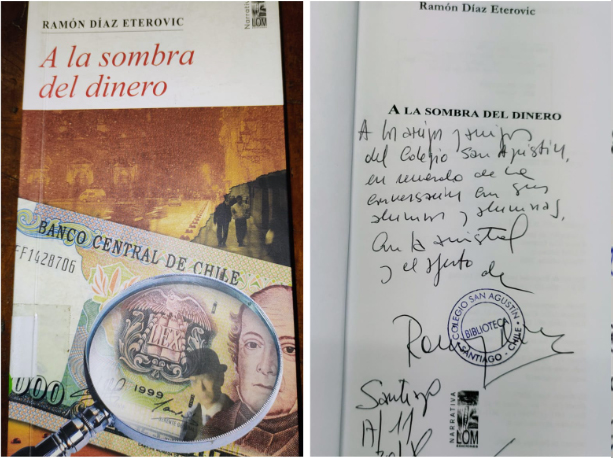 RAMÓN DÍAZ ETEROVIC
A la sombra
del dinero
Narrativa
LOM
BANCO CENTRAL DE CHILE
FF1428706
000
1999
Ramón Díaz Eterovic
A LA SOMBRA DEL DINERO
A las amigas y amigos
del Colegio San Agustín,
en recuerdo de la
conversación con sus
alumnos y alumnas,
Con la amistad
y el afecto de
COLEGIO SAN AGUSTIN
BIBLIOTECA
SANTIAGO - CHILE
Santiago
NARRATIVA
LOM